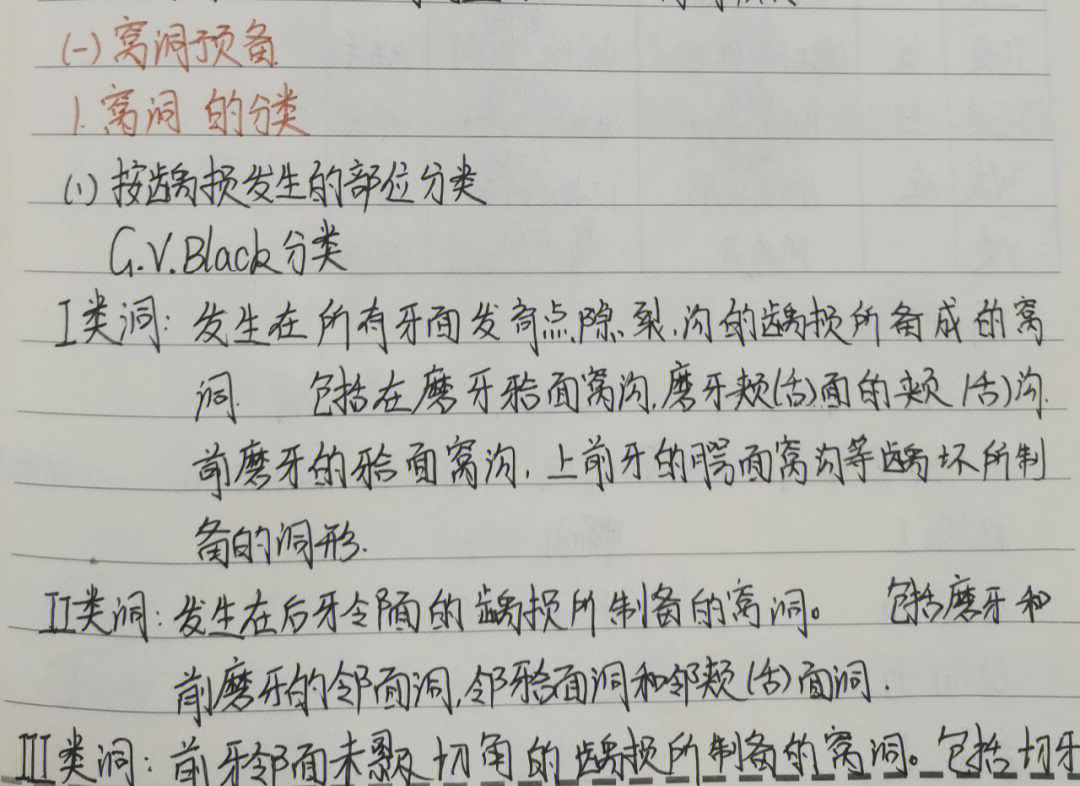 (一) 窝洞预备
1. 窝洞 的分类
(1) 按龋损发生的部位分类
G.V.Black分类
I类洞: 发生在所有牙面发育点隙裂沟的龋损所备成的窝
洞. 包括在磨牙𬌗面窝沟,磨牙颊(舌)面的颊(舌)沟.
前磨牙的𬌗面窝沟, 上前牙的腭面窝沟等龋坏所制
备的洞形.
II类洞: 发生在后牙邻面的龋损所制备的窝洞。 包括磨牙和
前磨牙的邻面洞,邻𬌗面洞和邻颊(舌)面洞.
III类洞: 前牙邻面未累及切角的龋损所制备的窝洞。包括切牙